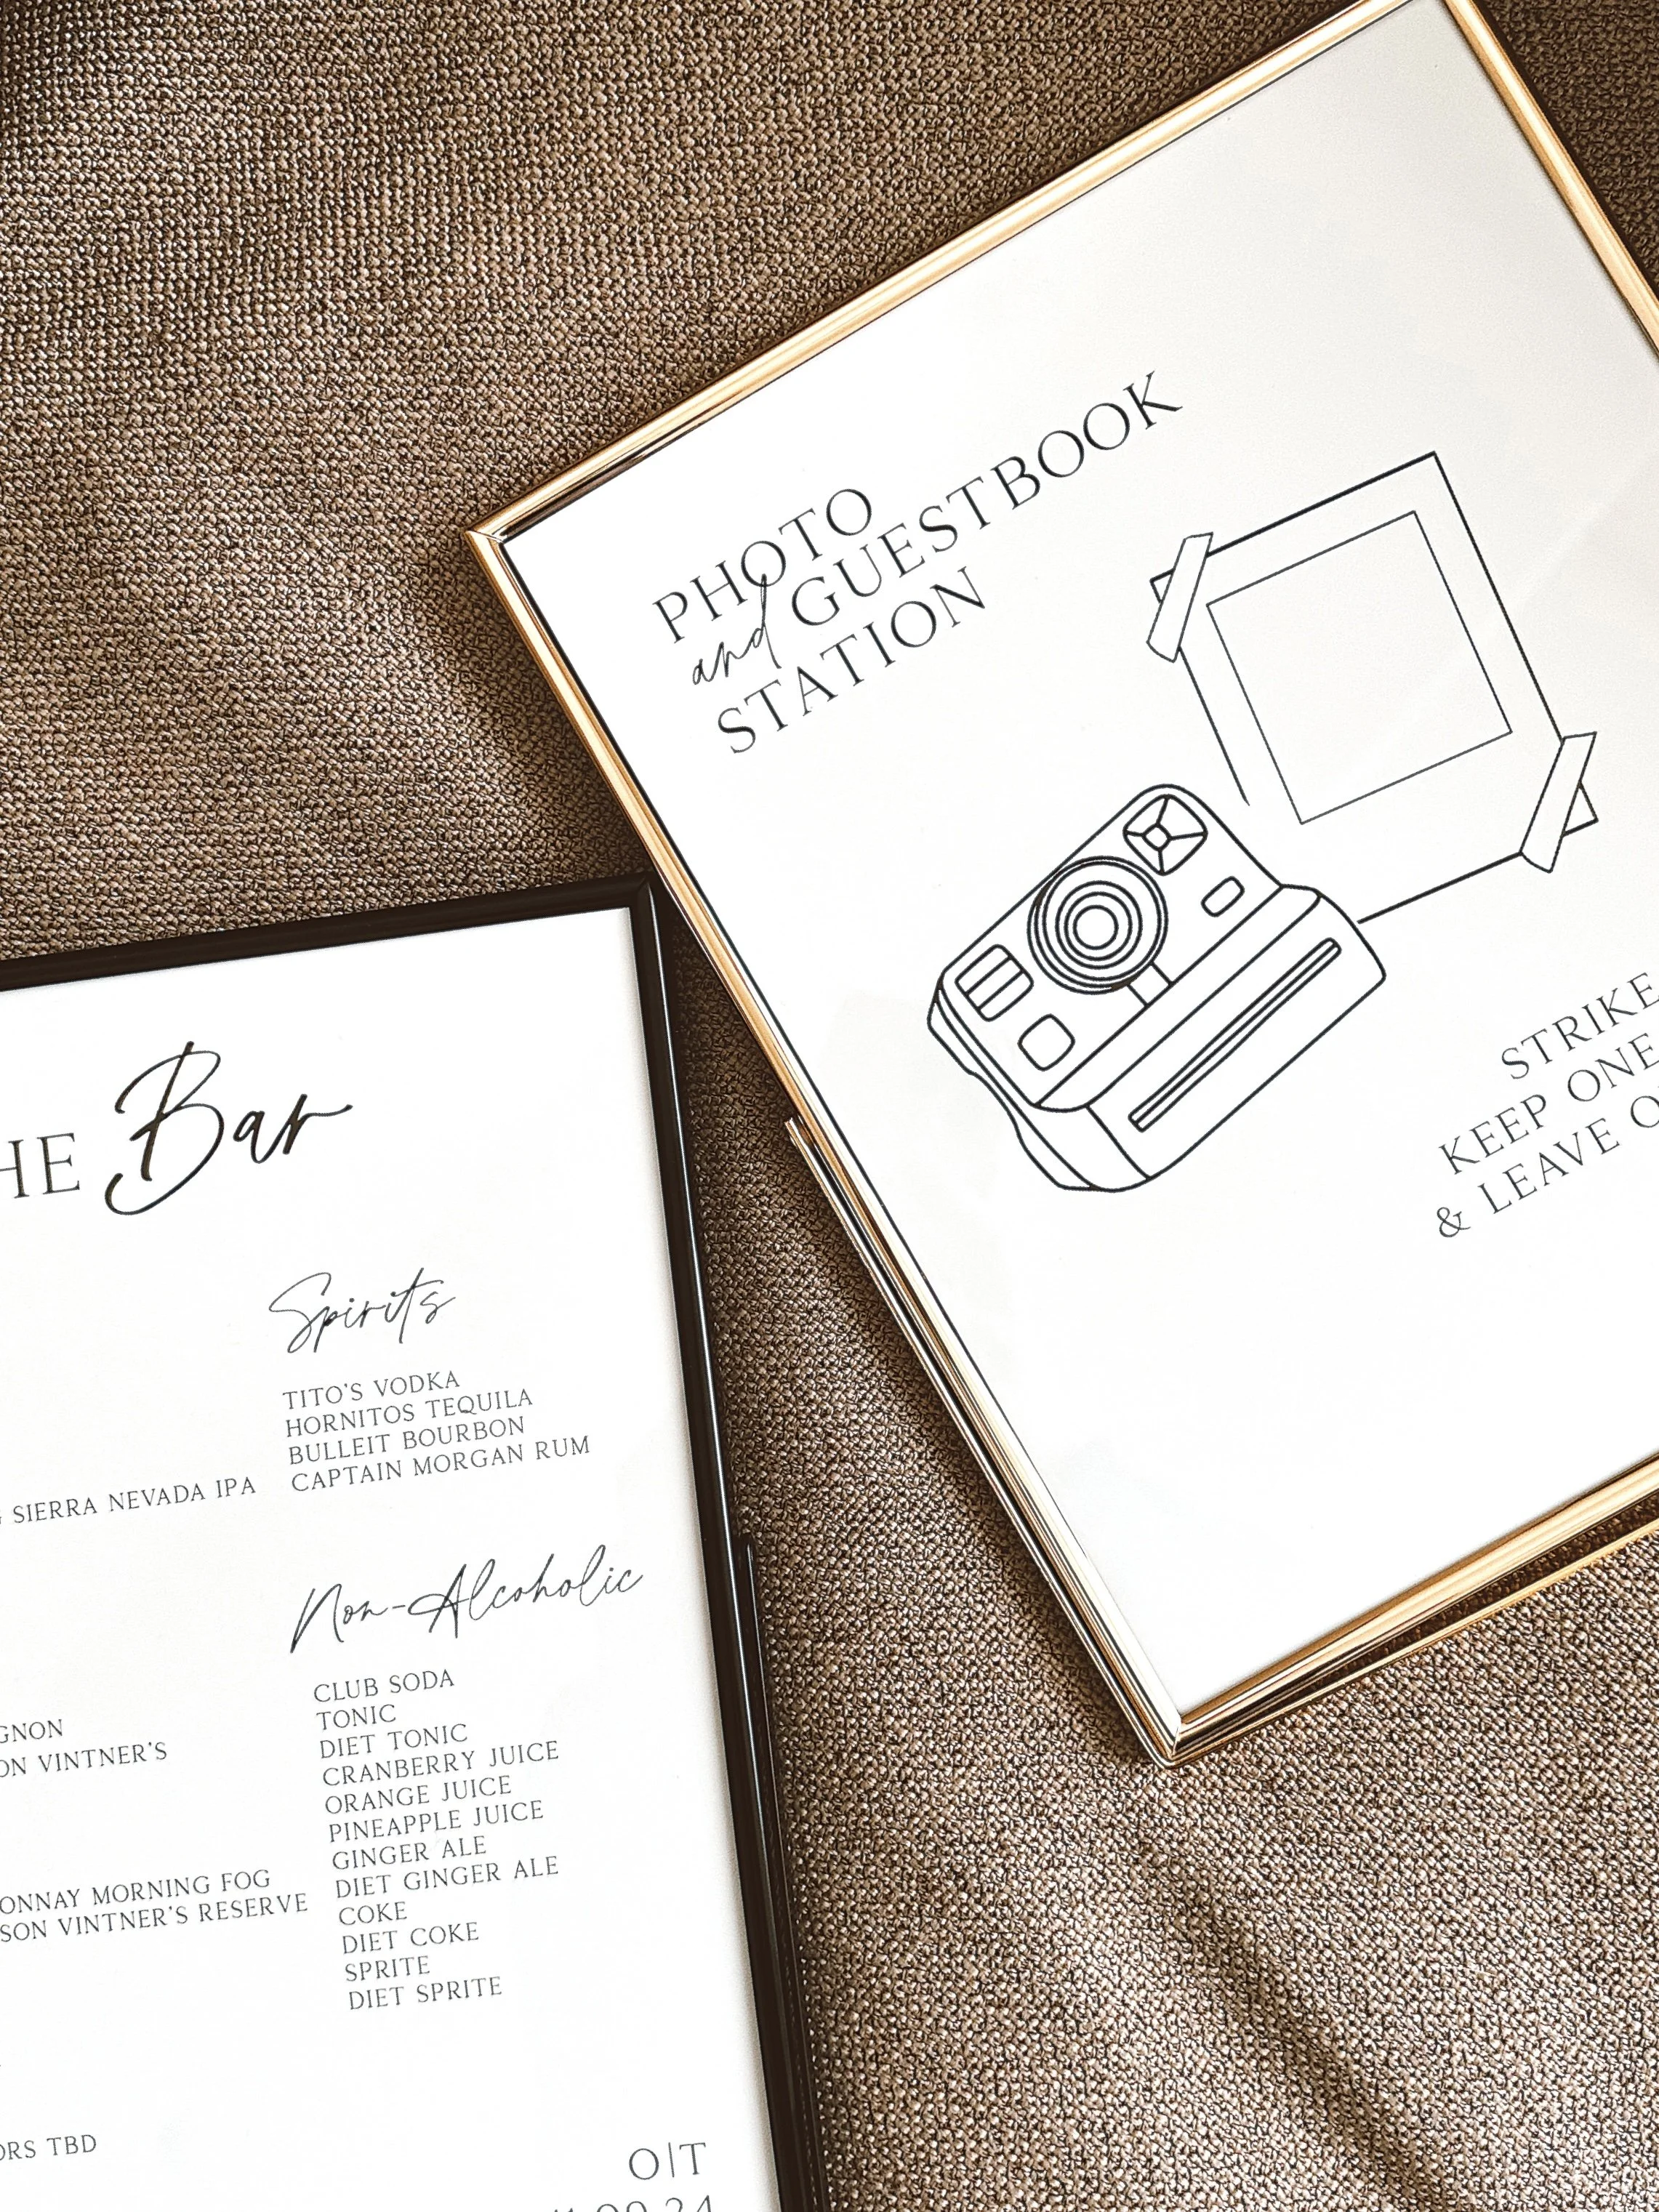 PHOTO
and GUESTBOOK
STATION
STRIKE
KEEP ONE
& LEAVE
HE Bar
Spirits
TITO'S VODKA
HORNITOS TEQUILA
BULLEIT BOURBON
CAPTAIN MORGAN RUM
SIERRA NEVADA IPA
Non-Alcoholic
CLUB SODA
TONIC
DIET TONIC
CRANBERRY JUICE
ORANGE JUICE
PINEAPPLE JUICE
GINGER ALE
DIET GINGER ALE
COKE
DIET COKE
SPRITE
DIET SPRITE
GNON
ON VINTNER'S
ONNAY MORNING FOG
SON VINTNER'S RESERVE
ORS TBD
O|T